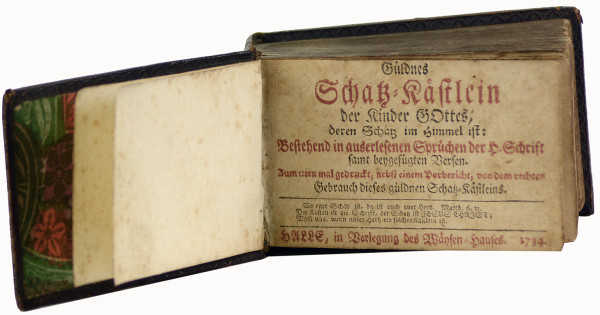 Güldnes
Schatz-Kästlein
der Kinder GOttes,
deren Schatz im Himmel ist:
Bestehend in auserlesenen Sprüchen der H. Schrift
samt beygefügten Versen.
Zum mal gedruckt, nebst einem Vorbericht, von dem rechten
Gebrauch dieses güldnen Schatz-Kästleins.
Wo euer Schatz ist, da ist auch euer Hertz. Matth. 6. 21.
Der Kasten ist die Schrift, der Schatz ist JESUS CHRIST;
Wohl uns, wenn unser Hertz ein solches Kästlein ist.
HALLE, in Verlegung des Wäysen-Hauses. 1734.